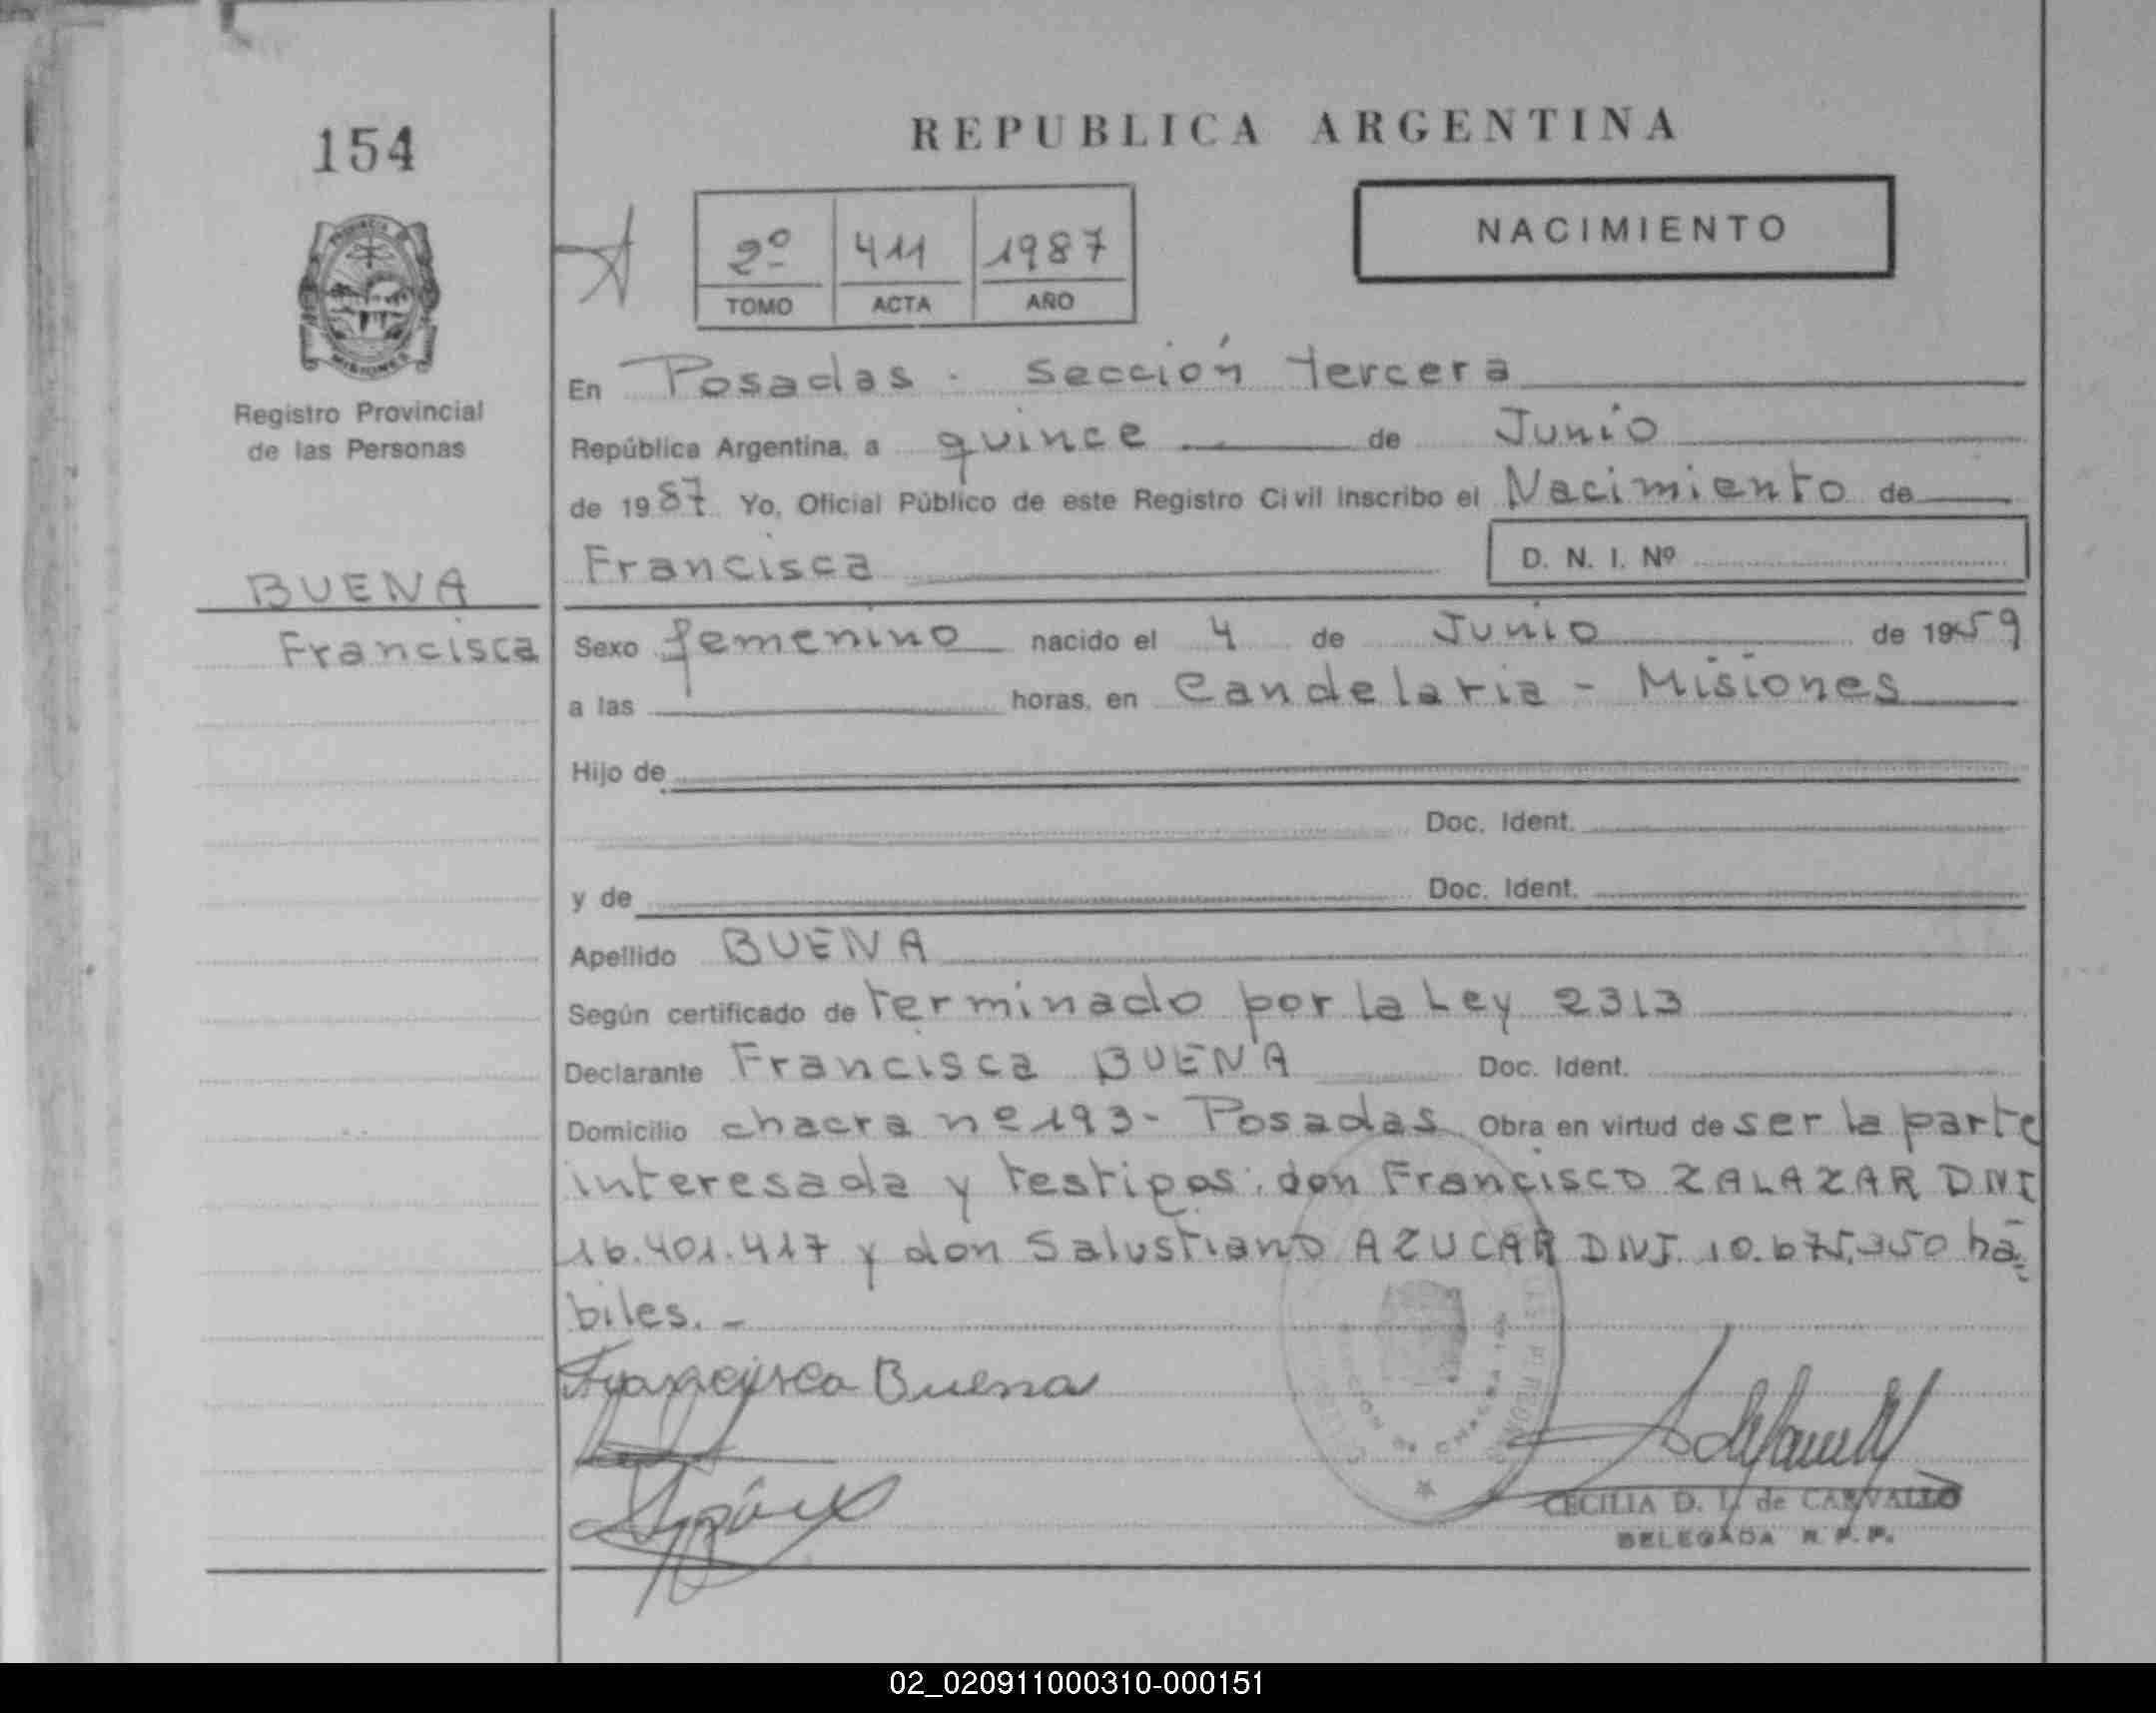 154
REPUBLICA ARGENTINA
NACIMIENTO
2º 411 1987
TOMO ACTA AÑO
MISIONES
Registro Provincial
de las Personas
BUENA
Francisca
En Posadas - sección tercera
República Argentina, a quince de Junio
de 1987 Yo, Oficial Público de este Registro Civil inscribo el Nacimiento de
Francisca D. N. I. Nº
Sexo femenino nacido el 4 de Junio de 1959
a las horas, en Candelaria - Misiones
Hijo de
Doc. Ident.
y de Doc. Ident.
Apellido BUENA
Según certificado de terminado por la Ley 2313
Declarante Francisca BUENA Doc. Ident.
Domicilio chacra nº 193- Posadas Obra en virtud de ser la parte
interesada y testigos: don Francisco ZALAZAR DNI
16.401.417 y don Salustiano AZUCAR DNI. 10.675.350 há-
biles. -
Francisca Buena
CECILIA D. L. de CARVALLO
DELEGADA R. P. P.
02_020911000310-000151